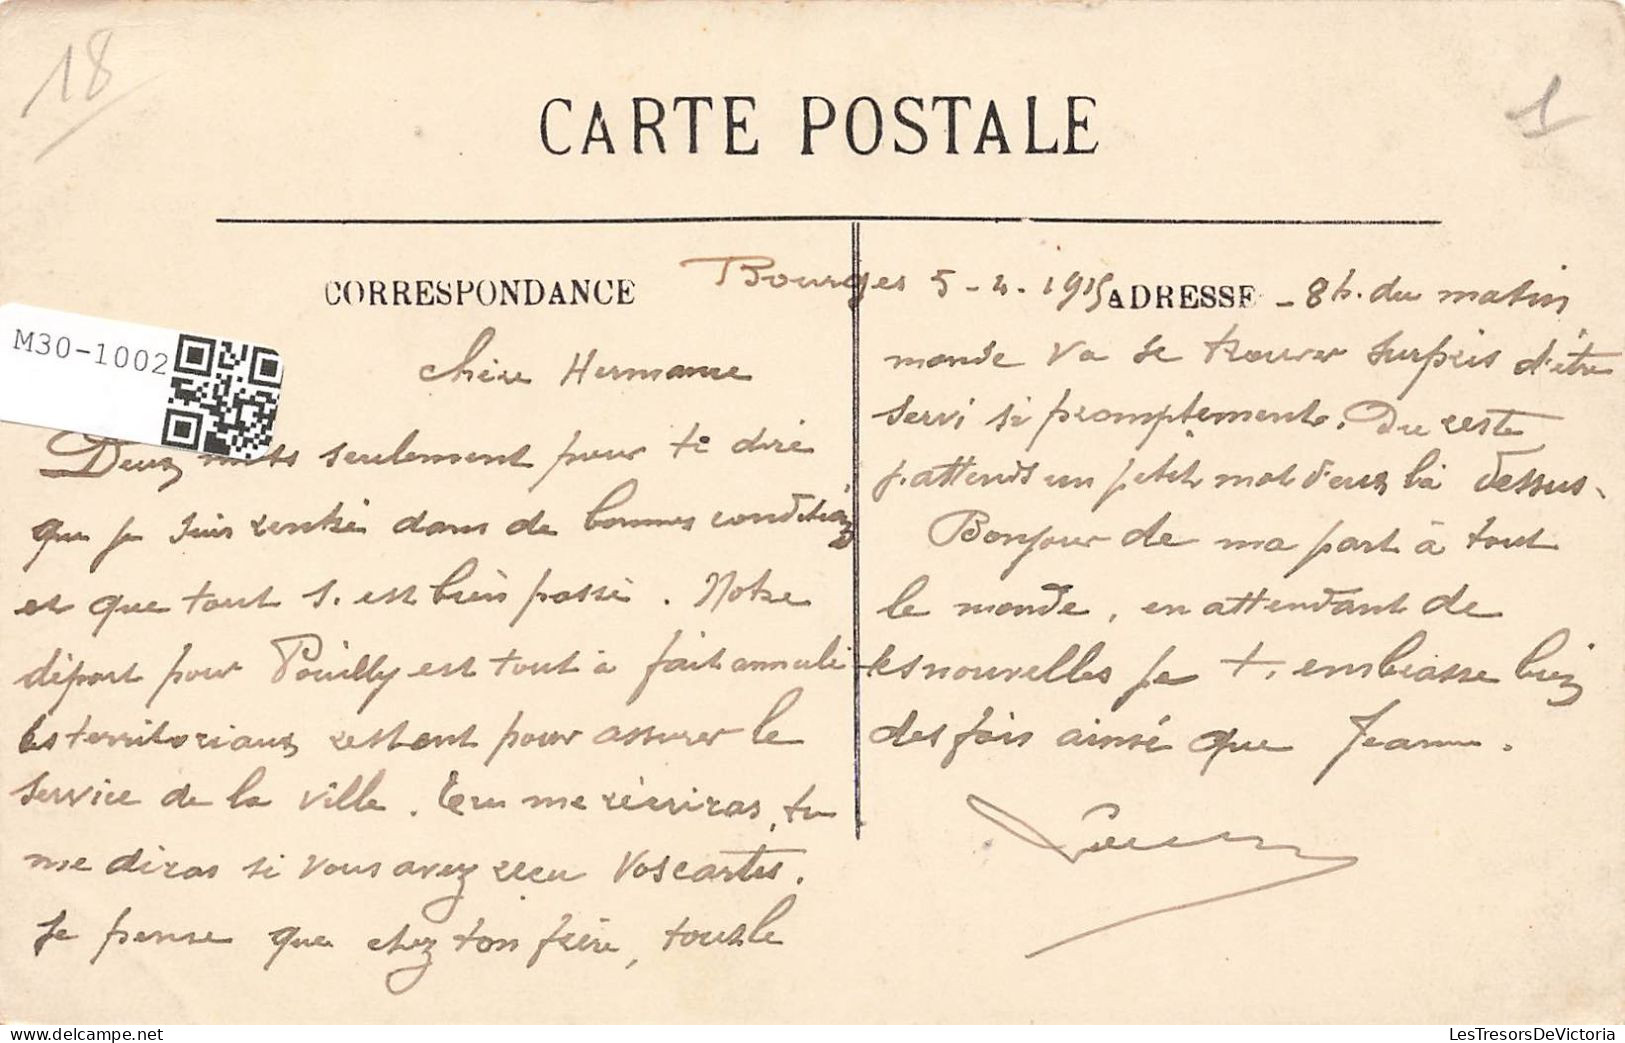 18
1
CARTE POSTALE
CORRESPONDANCE
ADRESSE
M30-1002
Bourges 5-4-1915 - 8h. du matin
chère Hermance
Deux mots seulement pour te dire
que je suis rentré dans de bonnes conditions
et que tout s'est bien passé. Notre
départ pour Pouilly est tout à fait annulé
les territoriaux restent pour assurer le
service de la ville. Tu me réécriras, tu
me diras si vous avez reçu vos cartes.
Je pense que chez ton frère, tous le
monde va se trouver surpris d'être
servi si promptement. Du reste
j'attends un petit mot d'eux là dessus.
Bonjour de ma part à tout
le monde, en attendant de
tes nouvelles je t'embrasse bien
des fois ainsi que Jeanne.
LesTresorsDeVictoria
LesTresorsDeVictoria.com